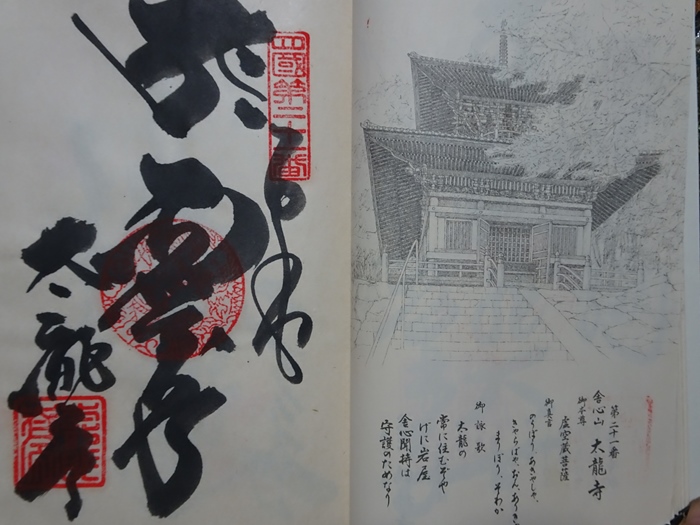 第二十一番
舎心山 太龍寺
御本尊
虚空蔵菩薩
御真言
のうぼう、あきゃしゃ、
きゃらばや、おん、ありきゃ
まりぼり、そわか
御詠歌
太龍の
常に住むぞや
げに岩屋
舎心聞持は
守護のためなり
四國第二十一番
太龍寺